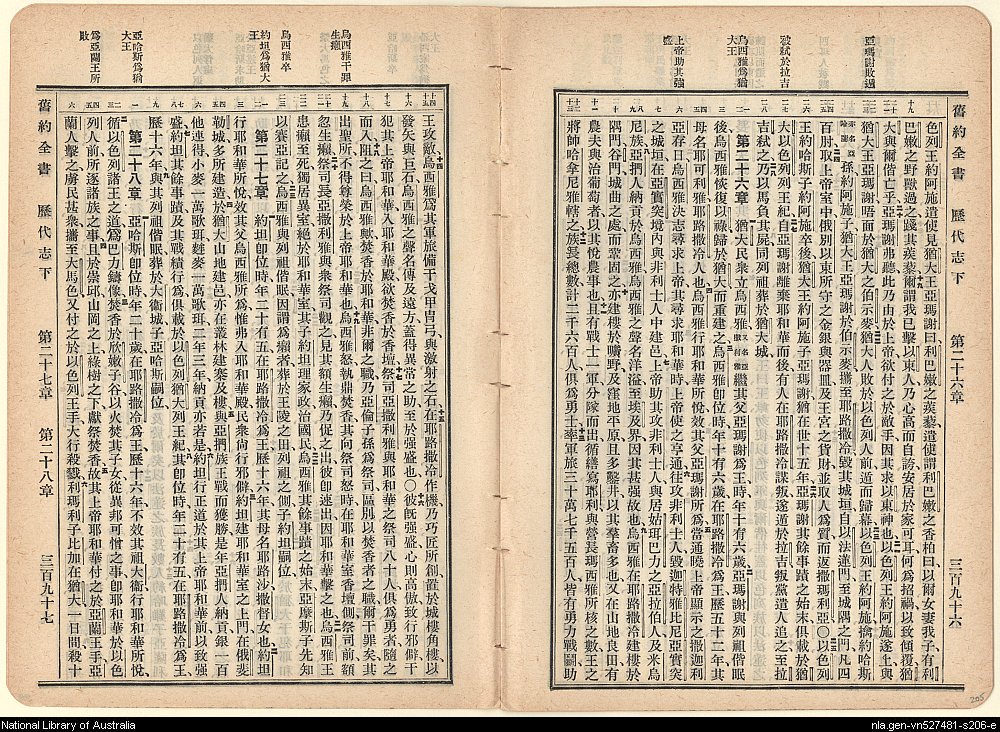 舊約全書 歷代志下 第二十六章 三百九十六
被弒於拉吉
烏西雅爲猶
大王
上帝助其強
盛
色列王約阿施遣使見猶大王亞瑪謝曰利巴嫩之蒺藜遣使謂利巴嫩之香柏曰以爾女妻我子有利
巴嫩之野獸過之踐其蒺藜爾謂我已擊以東人乃心高而自誇安居於家可耳何爲招禍以致傾覆猶
大與爾偕亡乎亞瑪謝弗聽此乃由於上帝欲付之於敵手因其求以東神也以色列王約阿施遂上與
猶大王亞瑪謝晤面於猶大之伯示麥猶大人敗於以色列人前遁而歸幕以色列王約阿施擒約哈斯
孫約阿施子猶大王亞瑪謝於伯示麥攜至耶路撒冷毀其城垣自以法蓮門至城隅之門凡四
百肘取上帝室中俄別以東所守之金銀與器皿及王宮之貨財並取人爲質而返撒瑪利亞○以色列
王約哈斯子約阿施卒後猶大王約阿施子亞瑪謝尚在世十五年亞瑪謝其餘事蹟之始末俱載於猶
大以色列列王紀自亞瑪謝離棄耶和華而後有人在耶路撒冷謀叛遂遁於拉吉叛黨遣人追之至拉
吉弒之乃以馬負其屍同列祖葬於猶大城
第二十六章 猶大民衆立烏西雅繼其父亞瑪謝爲王時年十有六歲亞瑪謝與列祖偕眠
後烏西雅恢復以祿歸於猶大而重建之烏西雅卽位時年十有六歲在耶路撒冷爲王歷五十二年其
母名耶可利雅耶路撒冷人也烏西雅行耶和華所悅效其父亞瑪謝所爲當通曉上帝顯示之撒迦利
亞存日烏西雅決志尋求上帝其尋求耶和華時上帝使之亨通往攻非利士人毀迦特雅比尼亞實突
之城垣在亞實突境內與非利士人中建邑上帝助其攻非利士人與居姑珥巴力之亞拉伯人及米烏
尼族亞捫人納貢於烏西雅烏西雅之聲名洋溢至埃及界因其甚强故也烏西雅在耶路撒冷建樓於
隅門谷門城曲之處而鞏固之亦建樓於曠野與窪地平原且多鑿井以其羣畜多也又在山地良田有
農夫與治葡萄者以其悅農事也且有戰士一軍分隊而出循繕寫耶利與營長瑪西雅所核之數王之
將師哈拿尼雅轄之族長總數計二千六百人俱爲勇士率軍旅三十萬七千五百人皆有勇力戰鬭助
舊約全書 歷代志下 第二十七章 第二十八章 三百九十七
烏西雅干罪
生癩
烏西雅卒
約坦爲猶大
王
亞哈斯爲猶
大王
爲亞蘭王所
敗
王攻敵烏西雅爲其軍旅備干戈甲冑弓與激射之石在耶路撒冷作機乃巧匠所創置於城樓角樓以
發矢與巨石烏西雅之聲名傳及遠方蓋得異常之助至於强盛也○彼旣强盛心則高傲致行邪僻干
犯其上帝耶和華入耶和華殿欲焚香於香壇祭司亞撒利雅與耶和華之祭司八十人俱爲勇者隨之
而入阻之曰烏西雅歟焚香於耶和華非爾之職乃亞倫子孫爲祭司區別以焚香者之職爾干罪矣其
出聖所不得尊榮於上帝耶和華也烏西雅怒執鼎焚香其向祭司怒時在耶和華室香壇側祭司前額
忽生癩祭司長亞撒利雅與衆祭司觀之見其額生癩乃促之出彼卽速出因耶和華擊之也烏西雅王
患癩至死獨居異室絕於耶和華室其子約坦理家政治國民烏西雅其餘事蹟之始末亞摩斯子先知
以賽亞記之烏西雅與列祖偕眠因謂爲癩者葬於王陵之田列祖之側子約坦嗣位
第二十七章 約坦卽位時年二十有五在耶路撒冷爲王歷十六年其母名耶路沙撒督女也約坦
行耶和華所悅效其父烏西雅所爲惟弗入耶和華殿民衆尚行邪僻約坦建耶和華室之上門在俄斐
勒城多所建造於猶大山地建邑亦在叢林建寨及樓與亞捫族王戰而獲勝是年亞捫人納貢銀一百
他連得小麥一萬歌珥麰麥一萬歌珥二年三年納貢亦若是約坦行正道於其上帝耶和華前以致强
盛約坦其餘事蹟及其戰績行爲俱載於以色列猶大列王紀其卽位時年二十有五在耶路撒冷爲王
歷十六年約坦與其列祖偕眠葬於大衛城子亞哈斯嗣位
第二十八章 亞哈斯卽位時年二十歲在耶路撒冷爲王歷十六年不效其祖大衛行耶和華所悅
循以色列諸王之道爲巴力鑄像焚香於欣嫩子谷以火焚其子女從異邦可憎之事卽耶和華於以色
列人前所逐諸族之事且於崇邱山岡之上綠樹之下獻祭焚香故其上帝耶和華付之於亞蘭王手亞
蘭人擊之虜民甚衆攜至大馬色又付之於以色列王手大行殺戮利瑪利子比加在猶大一日間殺十
National Library of Australia
nla.gen-vn527481-s206-e